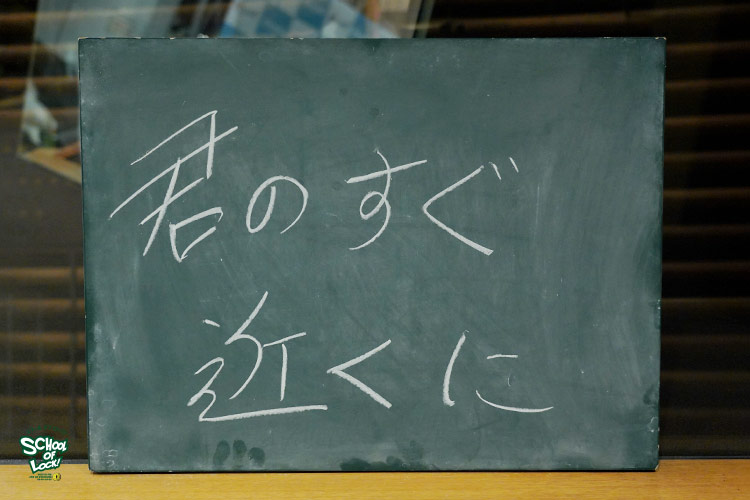 君のすぐ
近くに
SCHOOL
OF
LOCK!